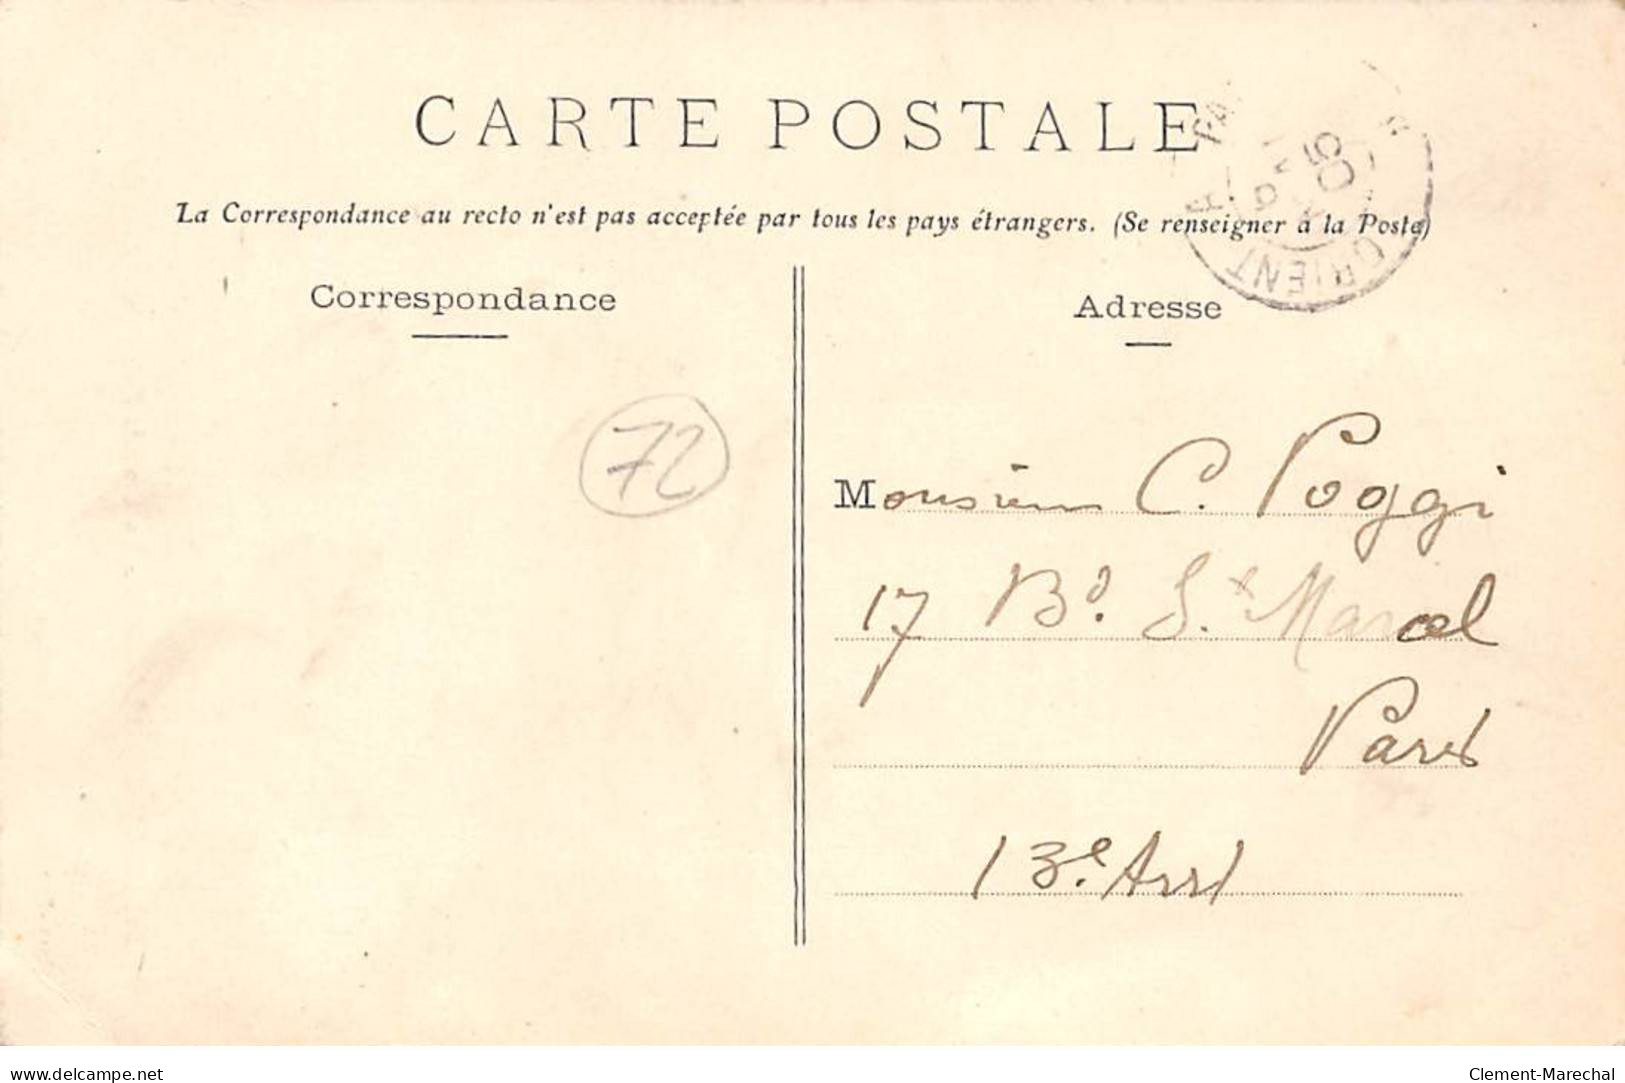 CARTE POSTALE
La Correspondance au recto n'est pas acceptée par tous les pays étrangers. (Se renseigner à la Poste)
Correspondance
Adresse
72
Monsieur C. Poggi
17 Bd. St. Marcel
Paris
13e. Arrt
ORIENT
09
delcampe.net
Clement-Marechal